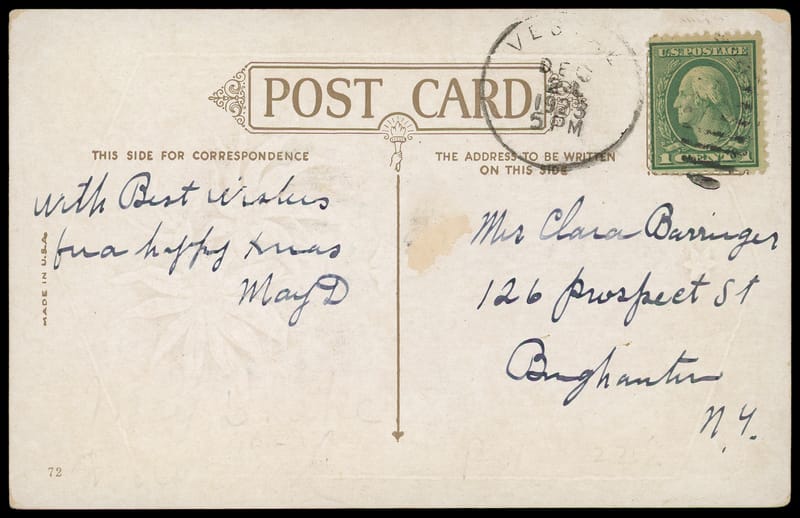 POST CARD
DEC
1923
5 PM
U.S. POSTAGE
1 CENT 1
THIS SIDE FOR CORRESPONDENCE
THE ADDRESS TO BE WRITTEN
ON THIS SIDE
With Best Wishes
for a happy Xmas
May D
Mrs Clara Barringer
126 Prospect St
Binghamton
N.Y.
MADE IN U.S.A.
72